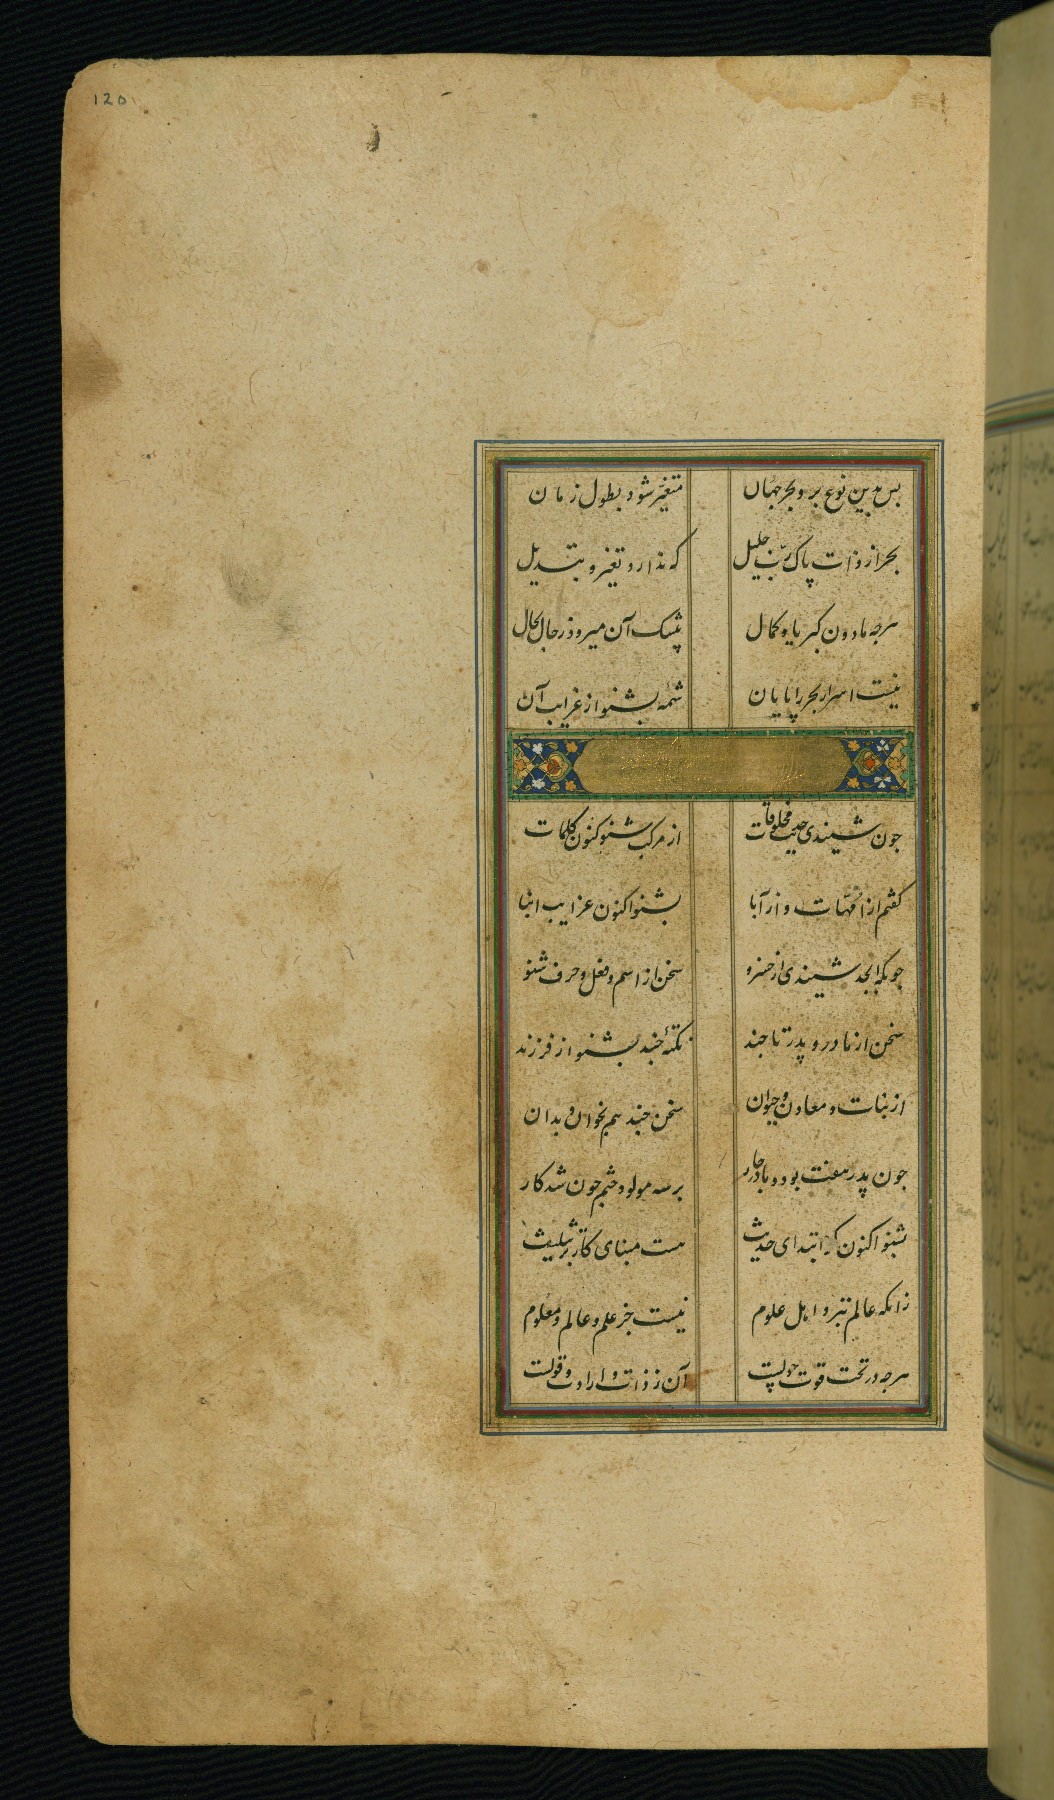 120
بس بدین نوع بر و بحر جهان متغیر شود بطول زمان
بجز از ذات پاک رب جلیل که ندارد تغیر و تبدیل
هرچه مادون کبریا و کمال بیشک آن میرود ز حال بحال
نیست اسرار بحر را پایان شمهٔ بشنو از غرایب آن
جون شنیدی حدیث مخلوقات از مرکب شنو کنون کلمات
کفتم از امهات و از آبا بشنو اکنون غرایب ابنا
جونکه ابجد شنیدی از خسرو سخن از اسم و فعل و حرف شنو
سخن از مادر و پدر تا جند نکتهٔ جند بشنو از فرزند
از نبات و معادن و حیوان سخن جند هم بخوان و بدان
جون پدر هفت بود و مادر جار بر سه مولود ختم جون شد کار
بشنو اکنون که ابتدای حدیث هست مبنای کار بر تثلیث
زانکه عالم بنزد اهل علوم نیست جز علم و عالم و معلوم
هرجه در تحت قوت آن ز ذات و ارادت و قولست